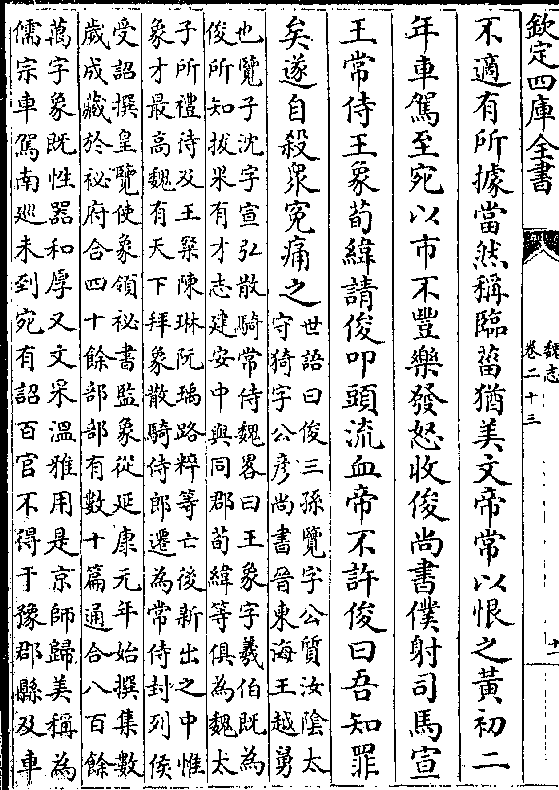 欽定四庫全書
魏志
卷二十三
不適有所據當然稱臨菑猶美文帝常以恨之黃初二
年車駕至宛以市不豐樂發怒收俊尚書僕射司馬宣
王常侍王象荀緯請俊叩頭流血帝不許俊曰吾知罪
矣遂自殺衆冤痛之
世語曰俊三孫覽字公質汝陰太
守猗字公彥尚書晉東海王越舅
也覽子沈字宣弘散騎常侍魏畧曰王象字羲伯既為
俊所知拔果有才志建安中與同郡荀緯等俱為魏太
子所禮待及王粲陳琳阮瑀路粹等亡後新出之中惟
象才最高魏有天下拜象散騎侍郎遷為常侍封列侯
受詔撰皇覽使象領祕書監象從延康元年始撰集數
歲成藏於祕府合四十餘部部有數十篇通合八百餘
萬字象既性器和厚又文采溫雅用是京師歸美稱為
儒宗車駕南巡未到宛有詔百官不得干豫郡縣及車